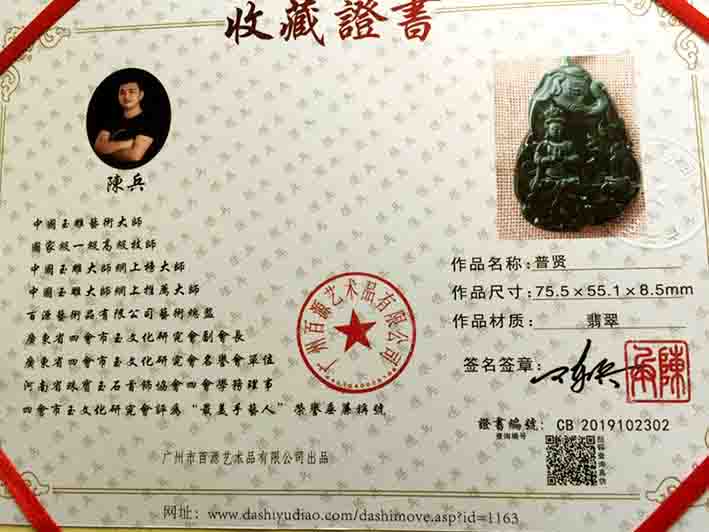 收藏證書
陳兵
中國玉雕藝術大師
國家級一級高級技師
中國玉雕大師網上榜大師
中國玉雕大師網上推薦大師
百源藝術品有限公司藝術總監
廣東省四會市玉文化研究會副會長
廣東省四會市玉文化研究會名譽會單位
河南省珠寶玉石首飾協會四會學務理事
四會市玉文化研究會評為“最美手藝人”榮譽
稱號
广州市百源艺术品有限公司出品
广州百源艺术品有限公司
作品名称:普贤
作品尺寸:75.5×55.1×8.5mm
作品材质:翡翠
签名签章:
陳兵
證書編號: CB 2019102302
查询编号
网址: www.dashiyudiao.com/dashimove.asp?id=1163